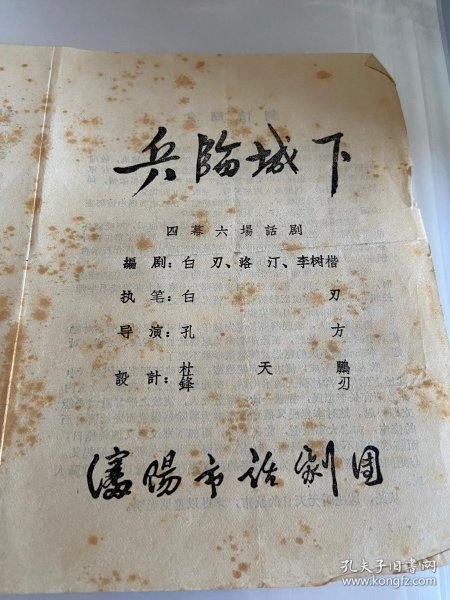 兵臨城下
四幕六場話剧
編剧：白刃、洛汀、李树楷
执笔：白刃
导演：孔方
設計：杜天鵬
鋒刃
瀋陽市話劇团
孔夫子旧书网
www.kongfz.com